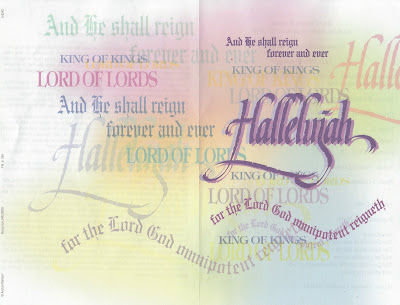 And He shall reign
forever and ever
KING OF KINGS
LORD OF LORDS
And He shall reign
forever and ever
Hallelujah
LORD OF LORDS
for the Lord God omnipotent
And He shall reign
forever and ever
KING OF KINGS
LORD OF LORDS
Hallelujah
KING OF KINGS
LORD OF LORDS
for the Lord God omnipotent reigneth
for the Lord God
KING OF KINGS
LORD OF LORDS
Hallelujah